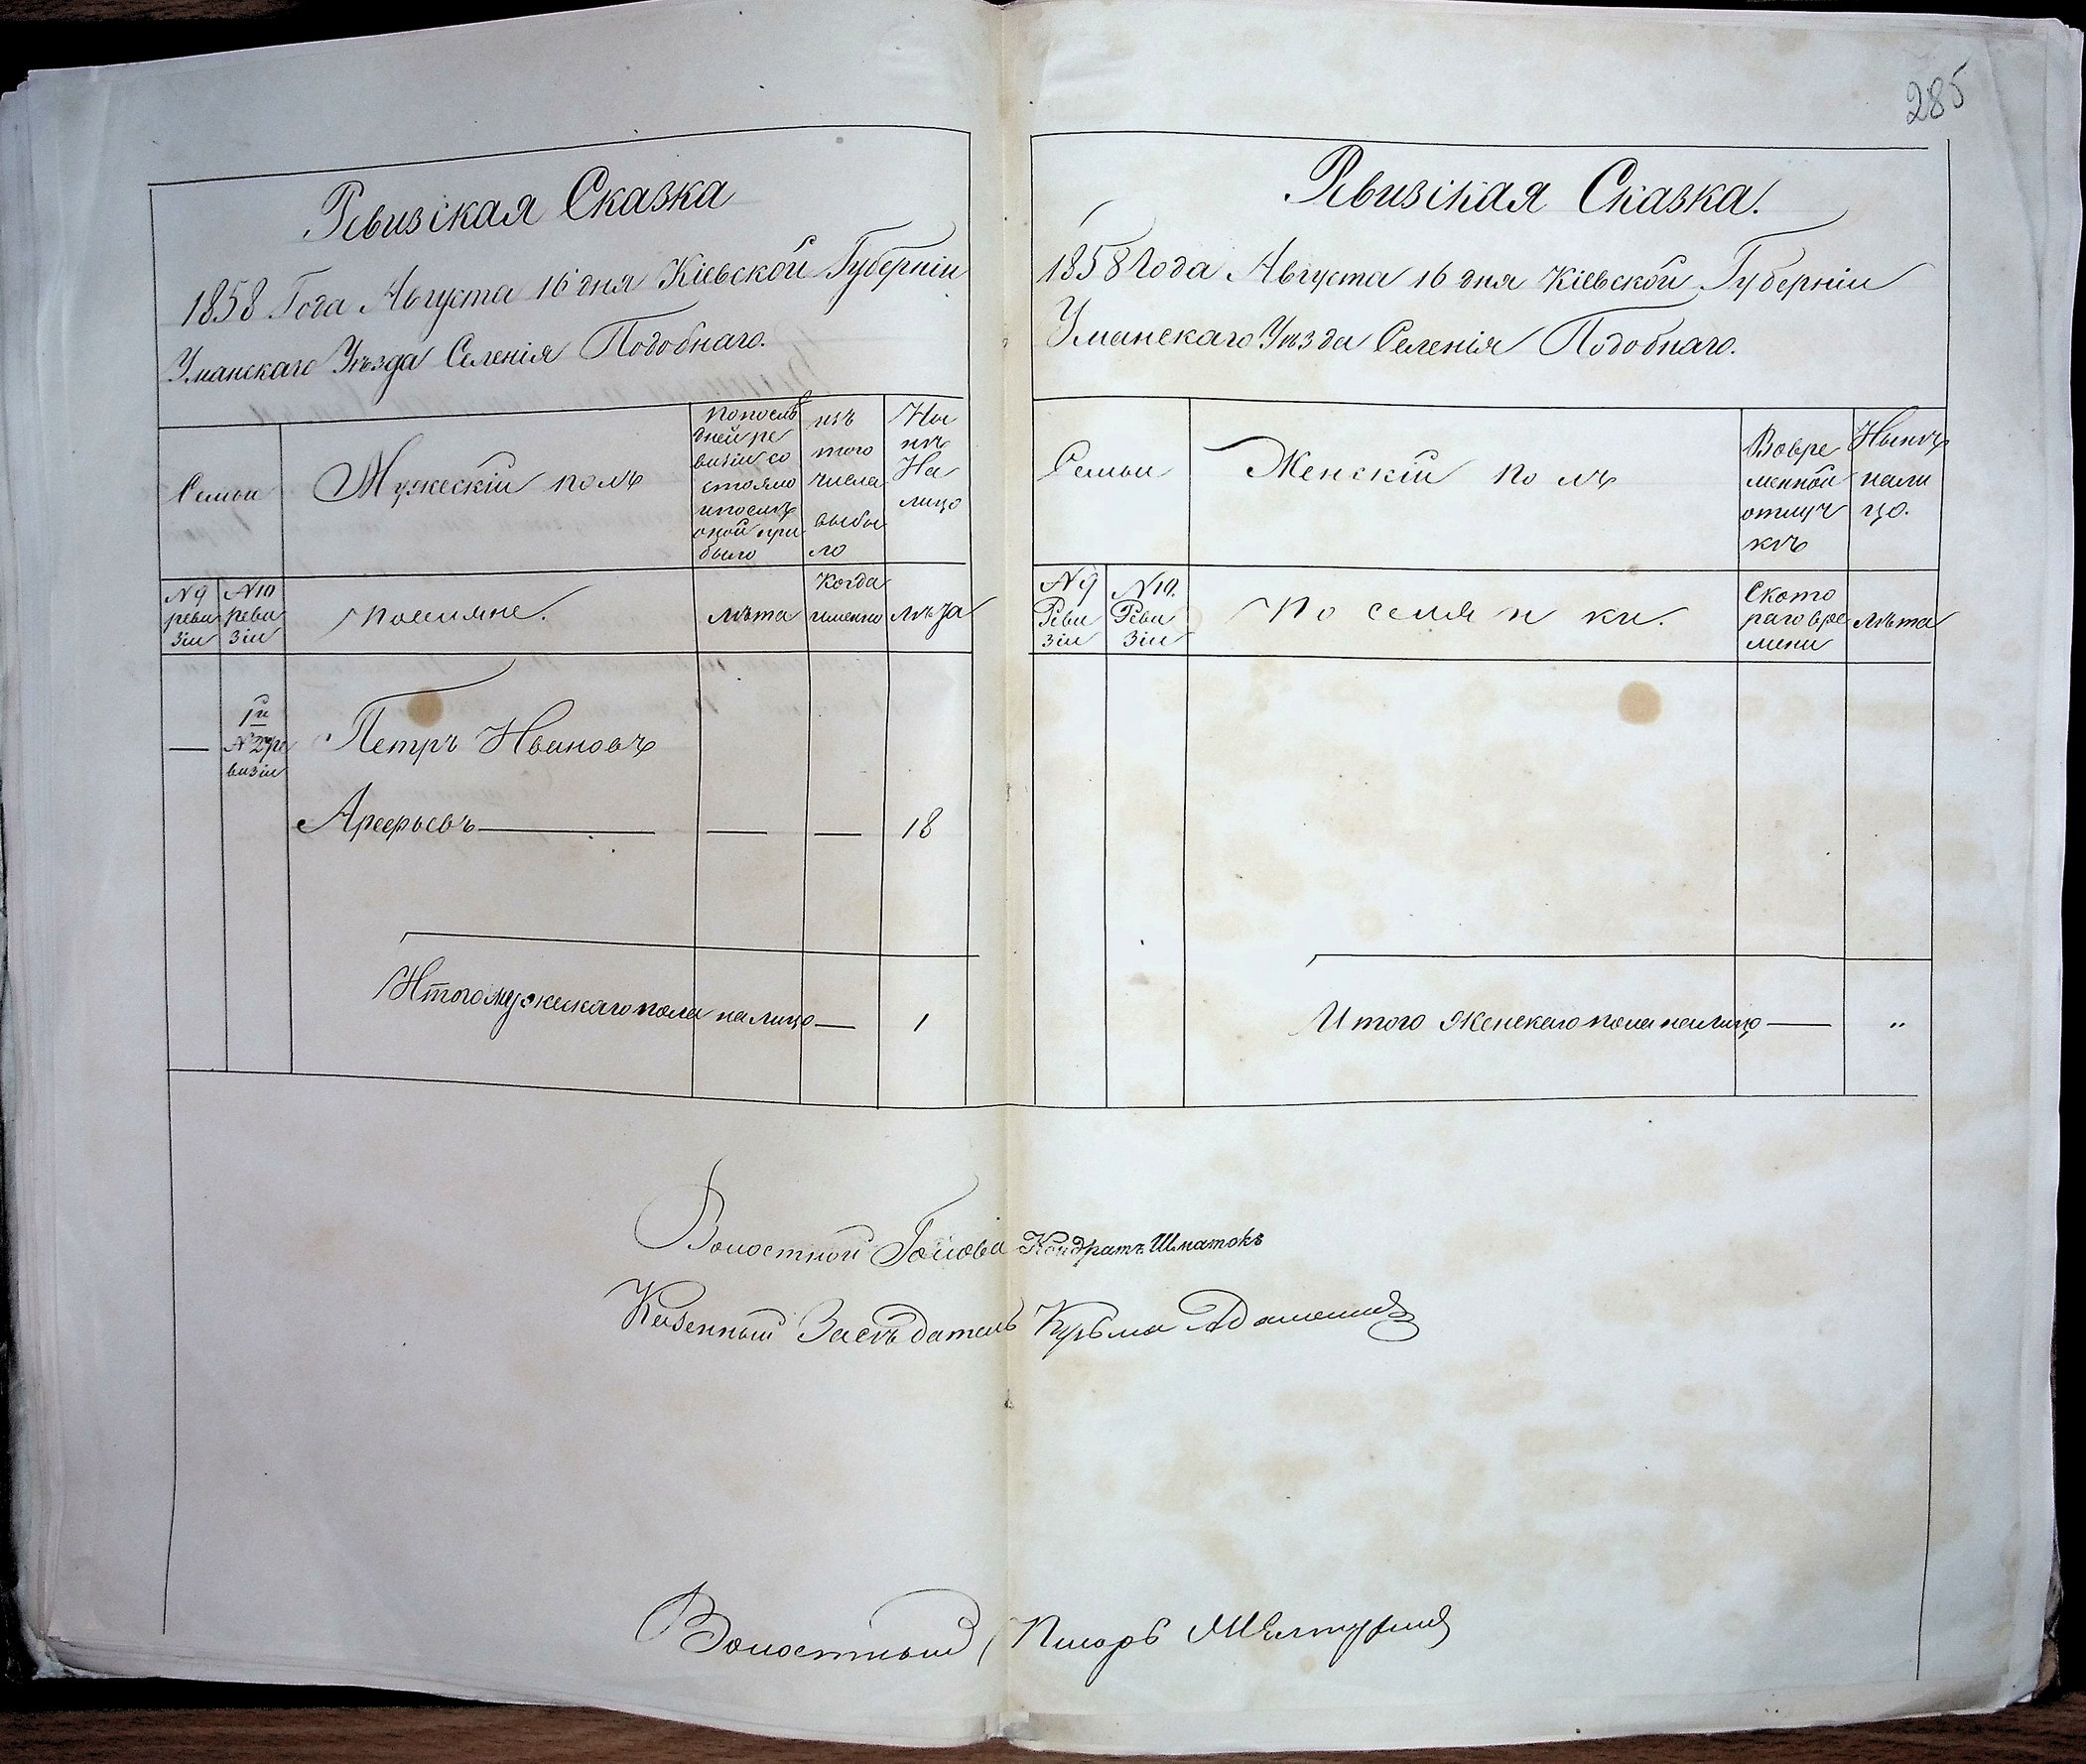 285
Ревизская Сказка
1858 Года Августа 16 дня Кіевской Губерніи
Уманскаго Уѣзда Селенія Подобнаго.
Семьи
Мужескій полъ
По послѣ
дней ре
визіи со
стояло
и послѣ
оной при
было
изъ
того
числа
выбы
ло
Ны
нѣ
На
лицо
N 9
реви
зіи
N 10
реви
зіи
Поселяне.
лѣта
Когда
именно
лѣта
—
1й
визіи
Петръ Ивановъ
Арефьевъ — — — 18
Итого мужескаго пола на лицо — 1
Ревизская Сказка.
1858 Года Августа 16 дня Кіевской Губерніи
Уманскаго Уѣзда Селенія Подобнаго.
Семьи
Женскій полъ
Во вре
менной
отлуч
кѣ
Нынѣ
нали
цо.
N 9
Реви
зіи
N 10.
Реви
зіи
Поселянки.
С кото
раго вре
мени
лѣта
Итого Женскаго пола на лицо — "
Волостной Голова Кондратъ Шматокъ
Казенный Засѣдатель Кузьма
Волостный Писарь